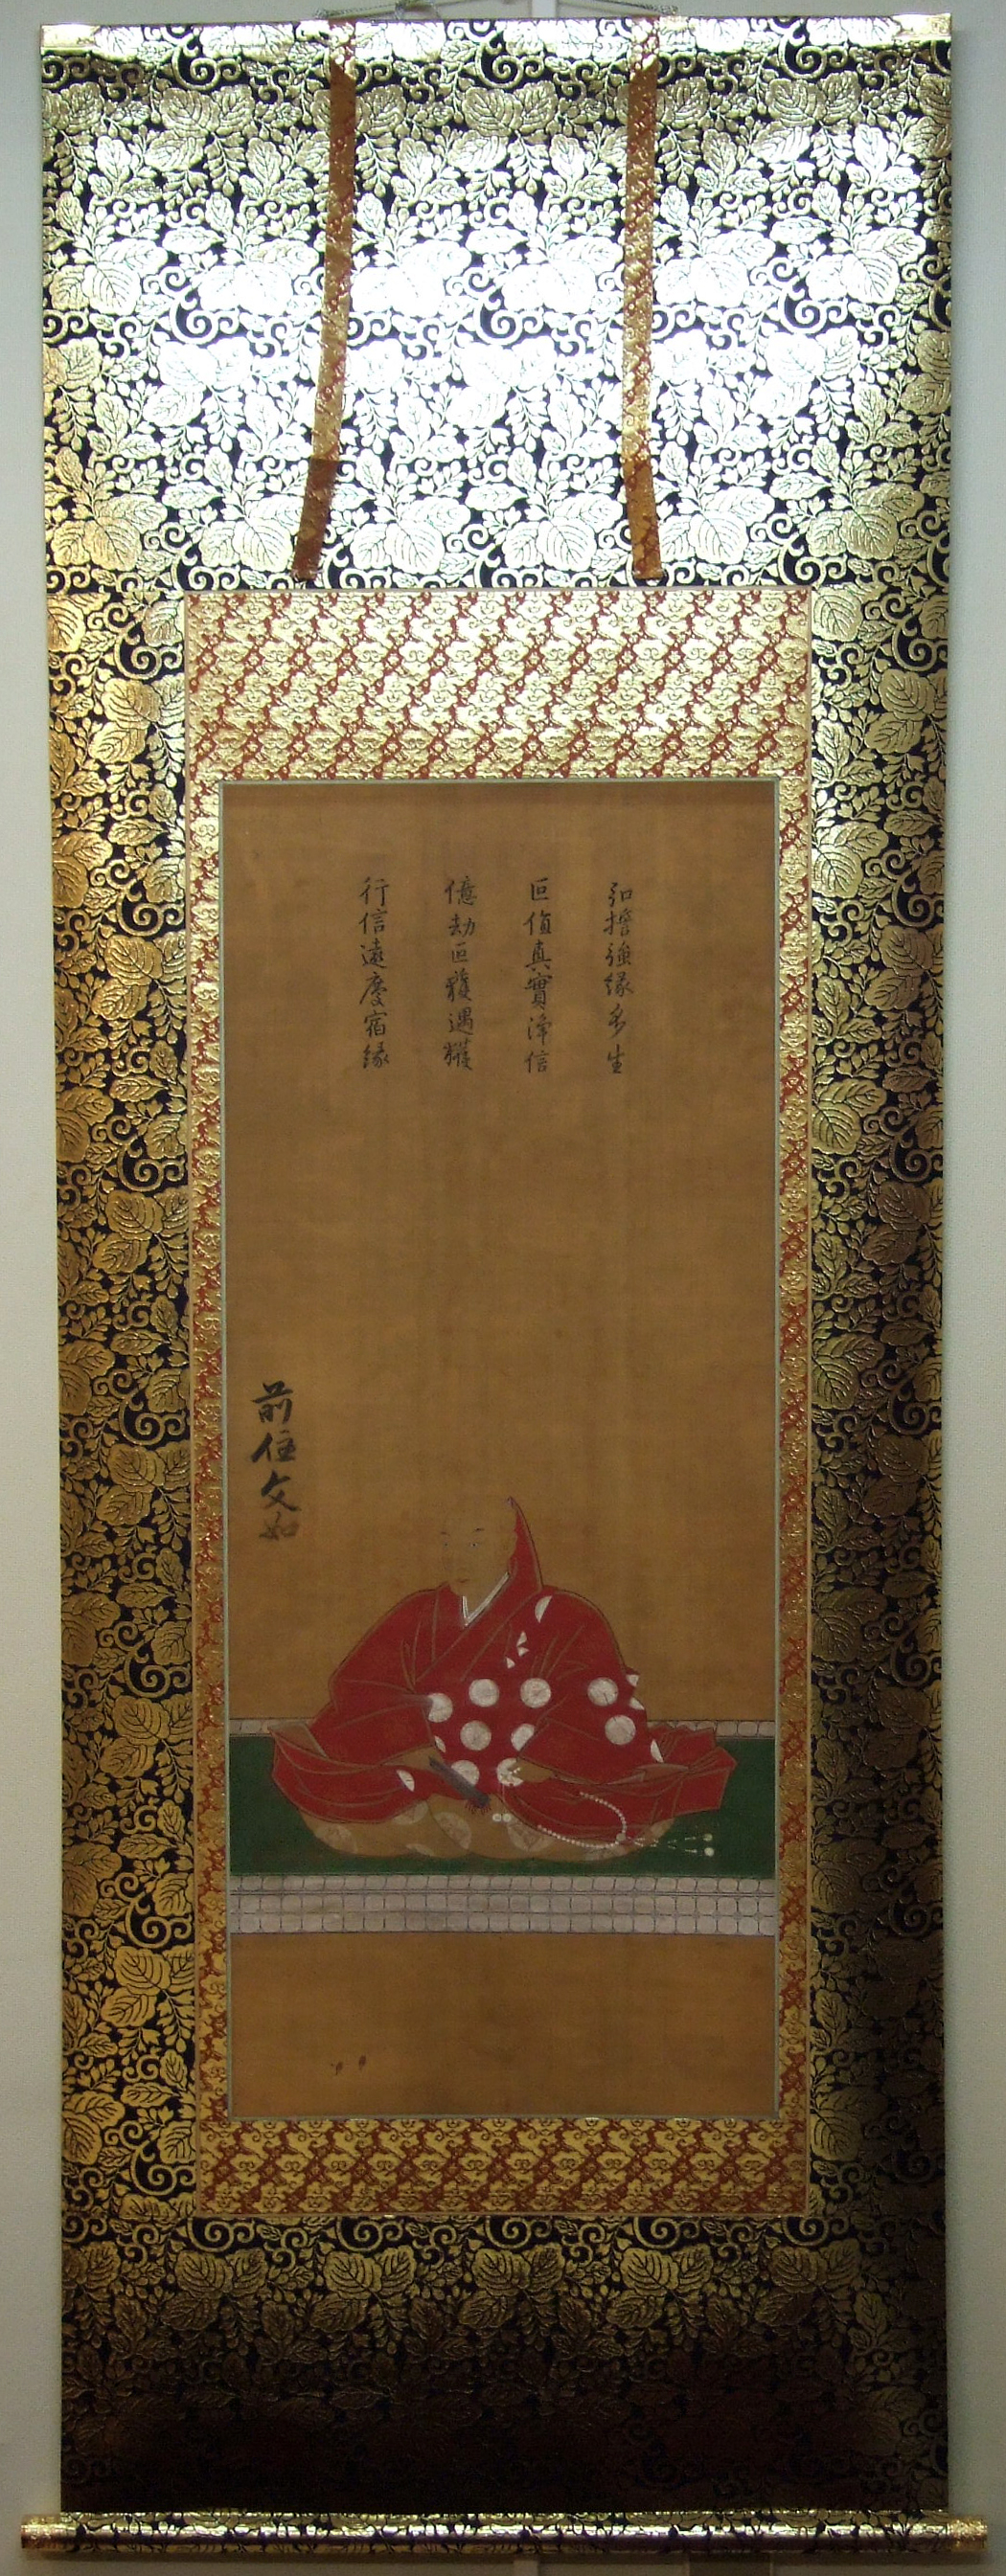 弘誓強縁多生
叵値真實浄信
億劫叵獲遇獲
行信遠慶宿縁
前住文如